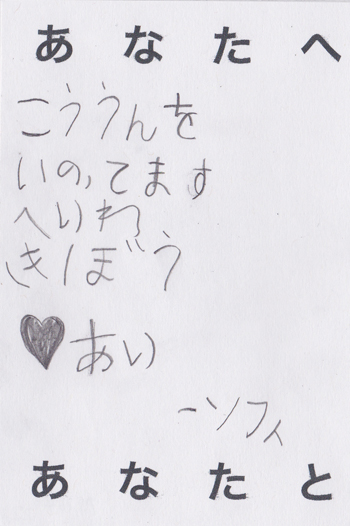 あなたへ
こううんを
いのってます
へいわ
きぼう
♥あい
ーソフィ
あなたと